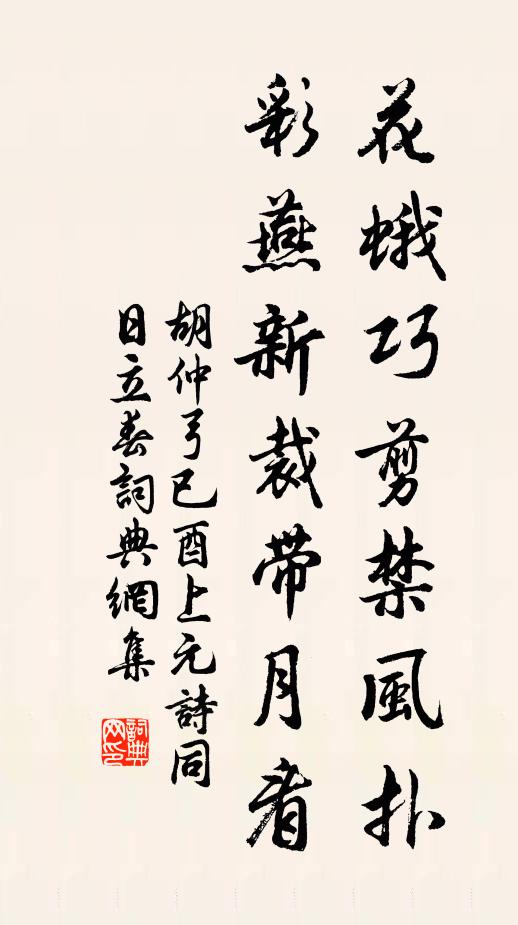 花蛾巧剪禁風扑
彩燕新裁带月看
胡仲弓已酉上元詩同
日立春詞典網集
詞典網印